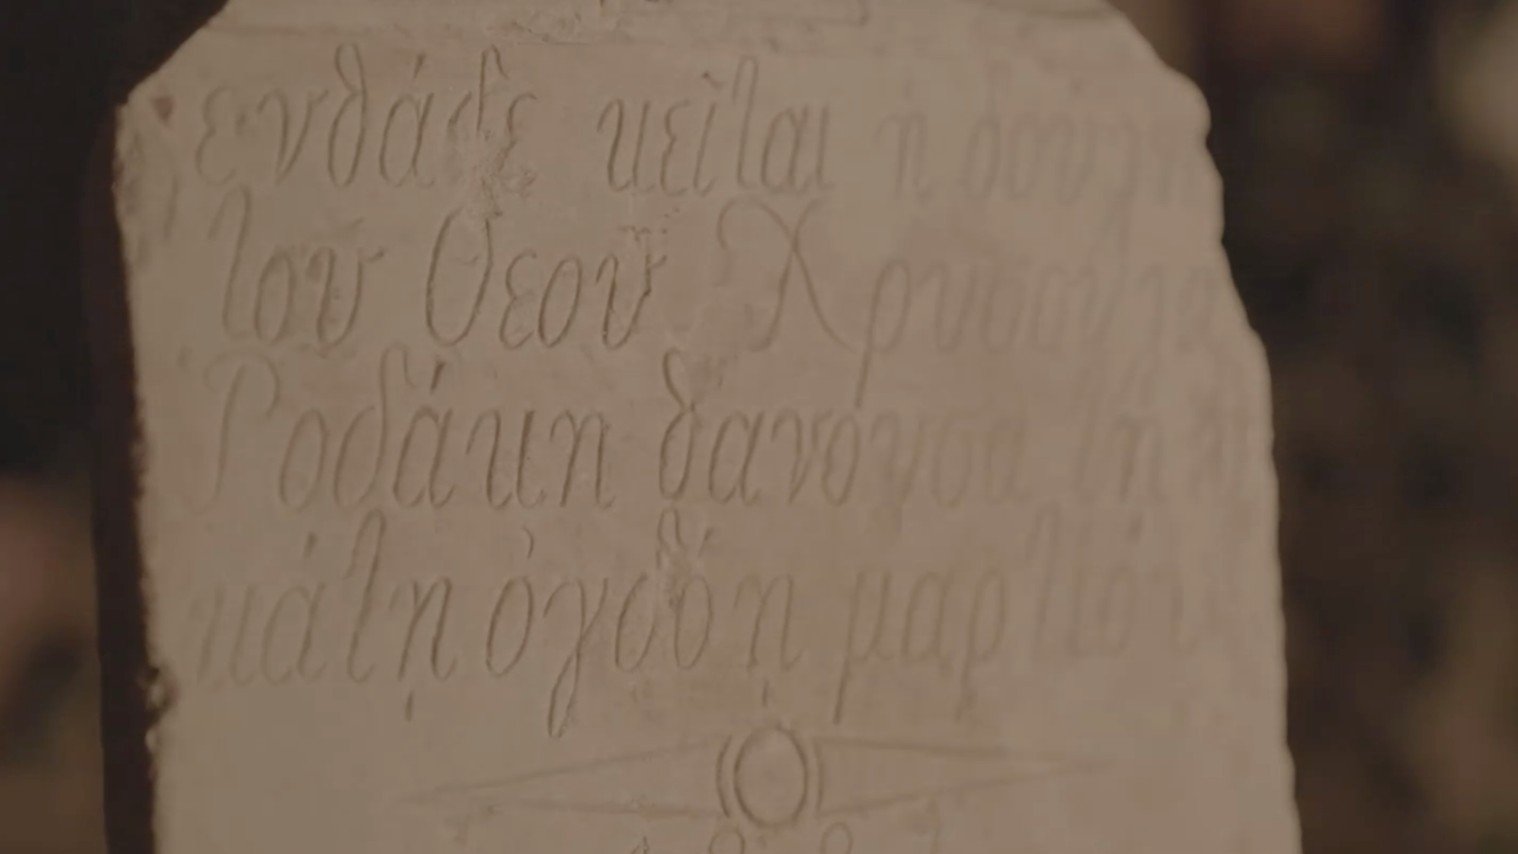 ενθάδε κεῖται ἡ δούλη
τοῦ Θεοῦ Χρυσούλα
Ῥοδάκη θανούσα τῇ
κάτῃ ὀγδόῃ μαρτίου